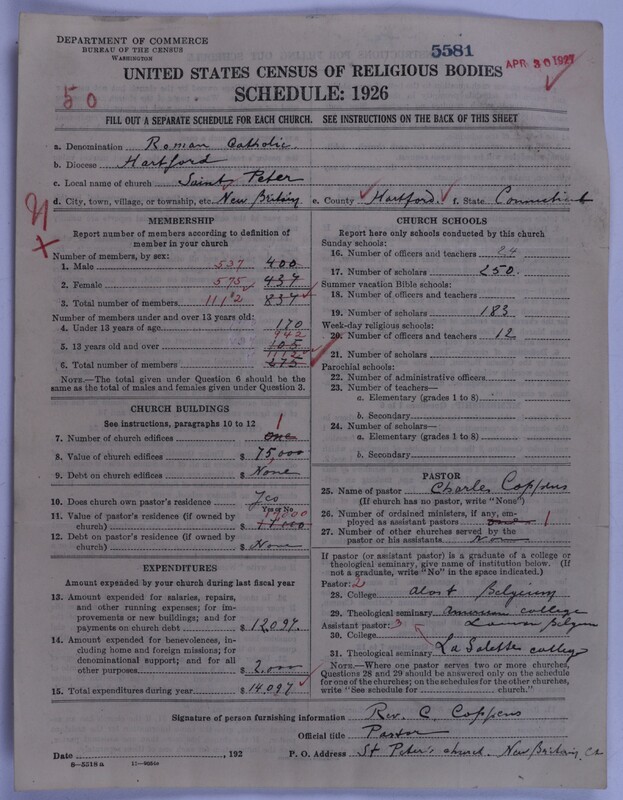 DEPARTMENT OF COMMERCE
BUREAU OF THE CENSUS
WASHINGTON
5581
APR 30 1927
UNITED STATES CENSUS OF RELIGIOUS BODIES
SCHEDULE: 1926
50
FILL OUT A SEPARATE SCHEDULE FOR EACH CHURCH. SEE INSTRUCTIONS ON THE BACK OF THIS SHEET
a. Denomination Roman Catholic
b. Diocese Hartford
c. Local name of church Saint Peter
d. City, town, village, or township, etc. New Britain e. County Hartford f. State Connecticut
MEMBERSHIP
Report number of members according to definition of
member in your church
Number of members, by sex:
1. Male 537 400
2. Female 575 437
3. Total number of members 1112 837
Number of members under and over 13 years old:
4. Under 13 years of age 170
942
5. 13 years old and over 105
1112
6. Total number of members 275
NOTE.—The total given under Question 6 should be
the same as the total of males and females given under Question 3.
CHURCH BUILDINGS
See instructions, paragraphs 10 to 12
1
7. Number of church edifices One
8. Value of church edifices $ 75,000
9. Debt on church edifices $ None
10. Does church own pastor's residence Yes
Yes or No
11. Value of pastor's residence (if owned by
church) $ 17,000
12. Debt on pastor's residence (if owned by
church) $ None
EXPENDITURES
Amount expended by your church during last fiscal year
13. Amount expended for salaries, repairs,
and other running expenses; for im-
provements or new buildings; and for
payments on church debt $ 12,097.
14. Amount expended for benevolences, in-
cluding home and foreign missions; for
denominational support; and for all
other purposes $ 2,000
15. Total expenditures during year $ 14,097
CHURCH SCHOOLS
Report here only schools conducted by this church
Sunday schools:
16. Number of officers and teachers 24
17. Number of scholars 250.
Summer vacation Bible schools:
18. Number of officers and teachers
19. Number of scholars 183
Week-day religious schools:
20. Number of officers and teachers 12
21. Number of scholars
Parochial schools:
22. Number of administrative officers
23. Number of teachers—
a. Elementary (grades 1 to 8)
b. Secondary
24. Number of scholars—
a. Elementary (grades 1 to 8)
b. Secondary
PASTOR
25. Name of pastor Charles Coppens
(If church has no pastor, write "None")
26. Number of ordained ministers, if any, em-
ployed as assistant pastors 1
27. Number of other churches served by the
pastor or his assistants None
If pastor (or assistant pastor) is a graduate of a college or
theological seminary, give name of institution below. (If
not a graduate, write "No" in the space indicated.)
Pastor: 2
28. College Alost Belgium
29. Theological seminary American college
Assistant pastor: 3 Louvain Belgium
30. College
31. Theological seminary La Salette college
NOTE.—Where one pastor serves two or more churches,
Questions 28 and 29 should be answered only on the schedule
for one of the churches; on the schedules for the other churches,
write "See schedule for church."
Signature of person furnishing information Rev. C. Coppens
Official title Pastor
Date , 192 P. O. Address St Peter's church. New Britain, Ct
8—5518a